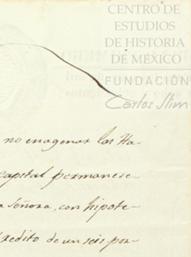 CENTRO DE
ESTUDIOS
DE HISTORIA
DE MÉXICO
FUNDACIÓN
Carlos Slim
no enagenar las Ha-
capital permanece-
a Señora, con hipote-
redito de un seis por